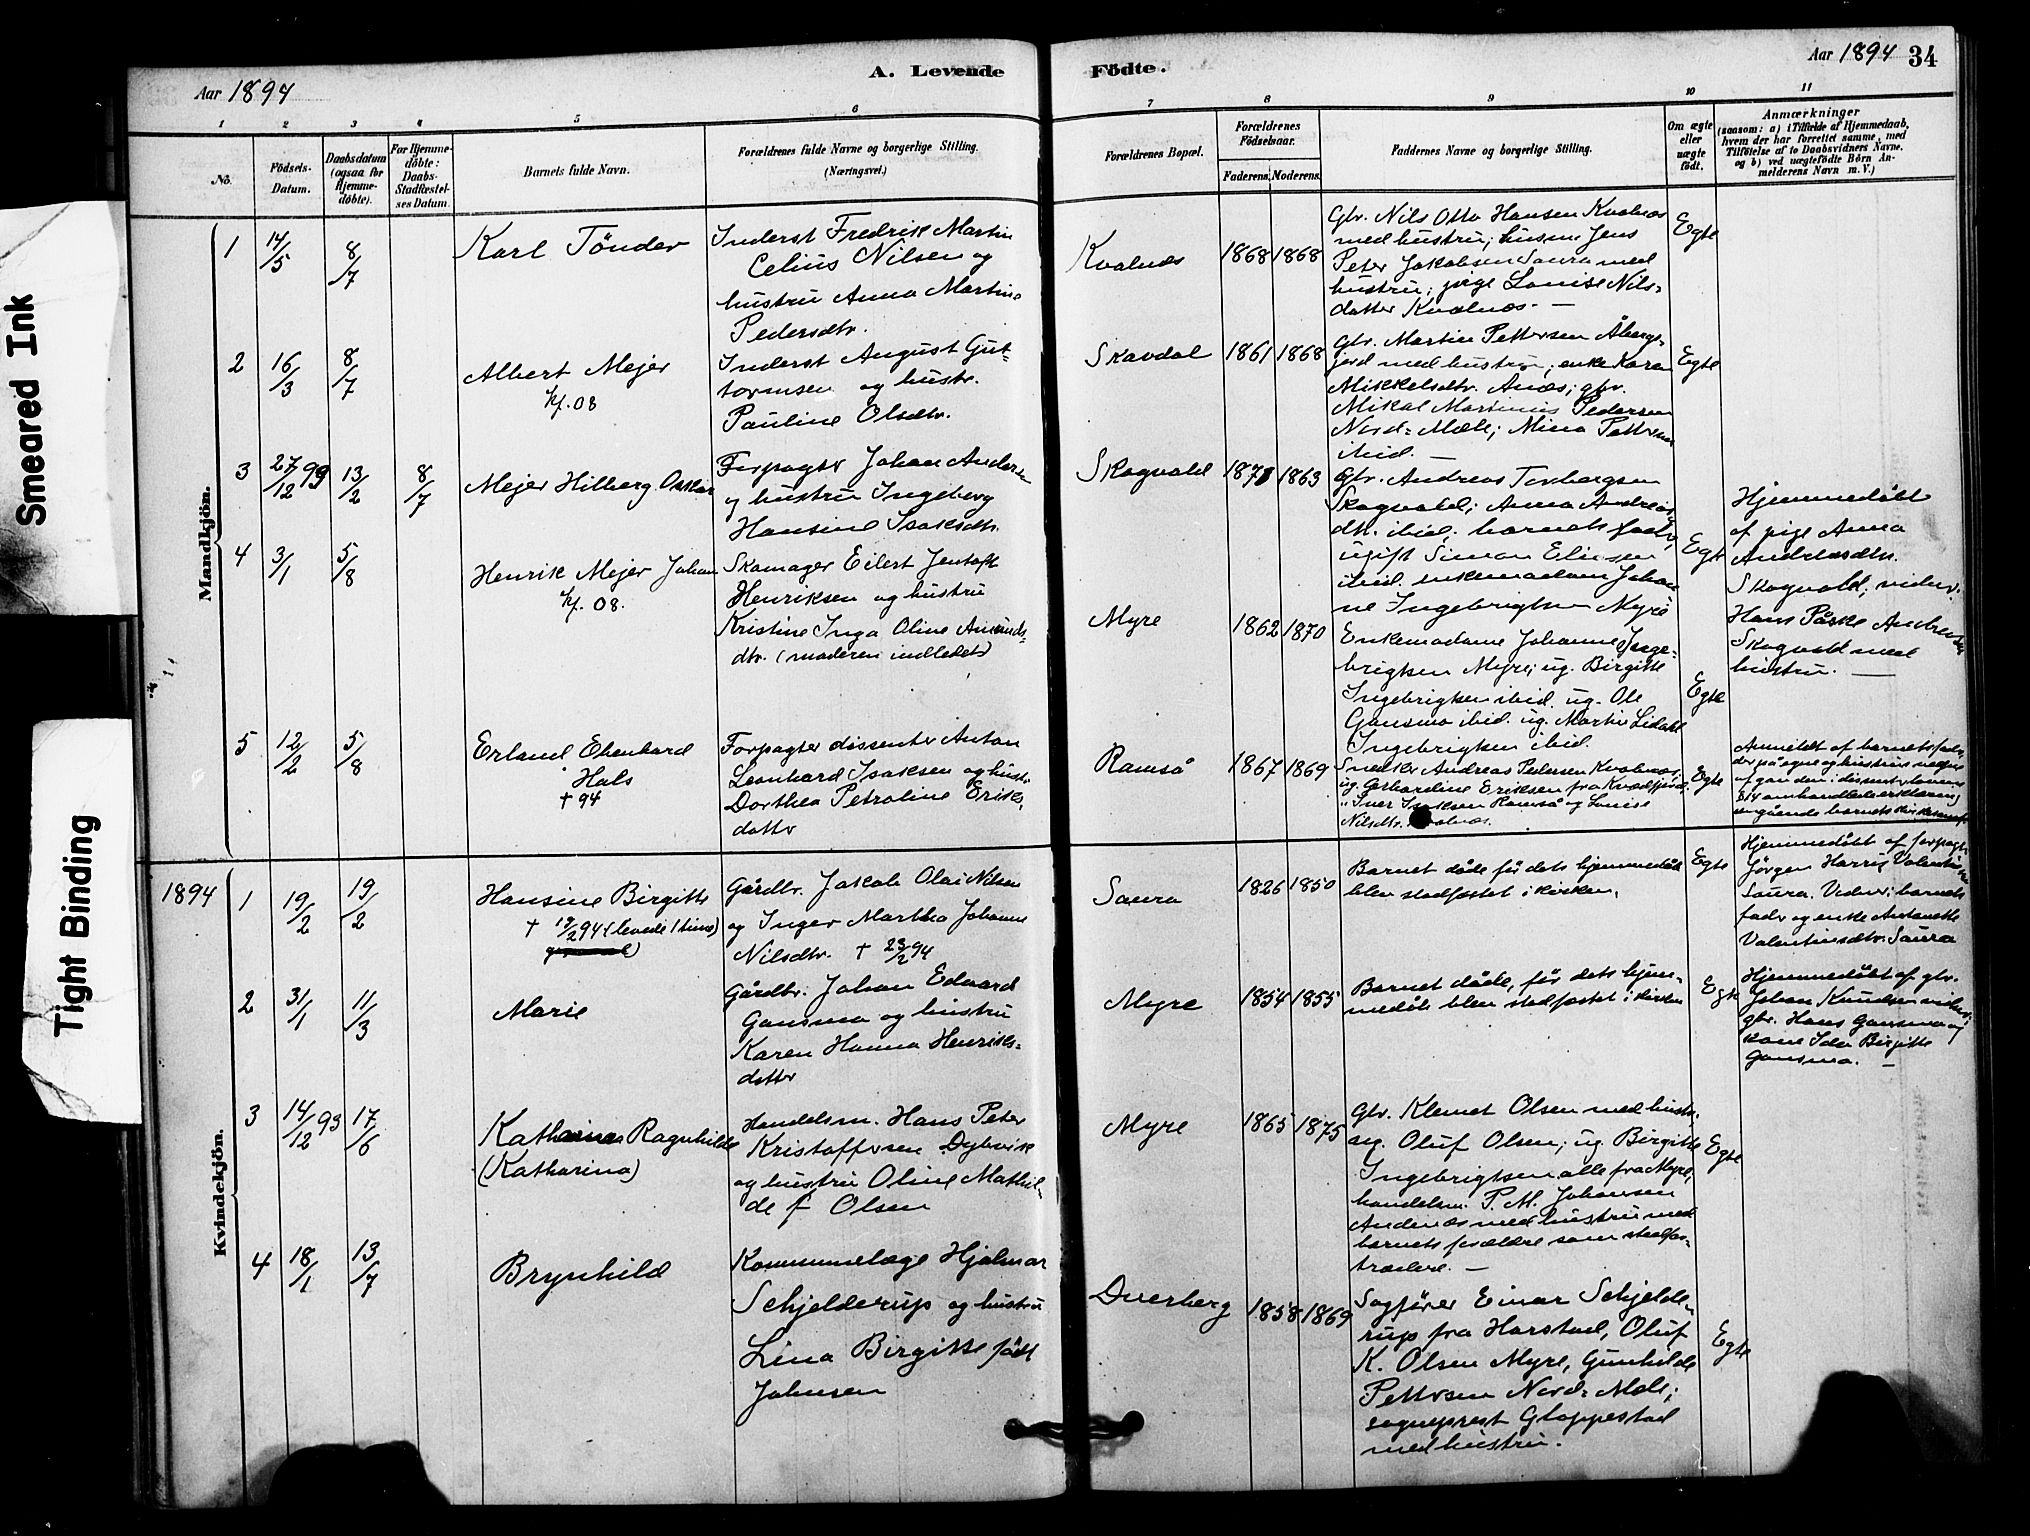 Smeared Ink
Tight Binding
Aar 1894
A. Levende
Födte.
Aar 1894
34
1 2 3 4 5 6 7 8 9 10 11
No.
Födsels-
Datum.
Daabsdatum
(ogsaa for
Hjemme-
döbte).
For Hjemme-
döbte:
Daabs-
Stadfæstel-
ses Datum.
Barnets fulde Navn.
Forældrenes fulde Navne og borgerlige Stilling.
(Næringsvei.)
Forældrenes Bopæl.
Forældrenes
Födselsaar.
Faderens. Moderens.
Faddernes Navne og borgerlige Stilling.
Om ægte
eller
uægte
født.
Anmærkninger
(saasom: a) i Tilfælde af Hjemmedaab,
hvem der har forrettet samme, med
Tilföielse af to Daabsvidners Navne.
og b) ved uægtefödte Börn An-
melderens Navn m. V.)
Mandkjön.
1 14/5 8/7
Karl Tönder
Inderst Fredrik Martin
Celius Nilsen og
hustru Anna Martine
Pedersdtr.
Kvalnæs
1868 1868
Gbr. Nils Otto Hansen Kvalnæs
med hustru; husm Jens
Peter Jakobsen Saura med
hustru; pige Louise Nils-
datter Kvalnæs. —
Egte
2 16/3 8/7
Albert Mejer
kf. 08
Inderst August Gut-
tormsen og hustr.
Pauline Olsdtr.
Skavdal
1861 1868
Gbr. Martin Pettersen Åbergs-
jord med hustru; enke Karen
Mikkelsdtr. Anæs; gbr.
Mikal Martinus Pedersen
Nord-Mæle; Mina Pettersen
ibid. —
Egte
3 27/12 93 13/2 8/7
Mejer Hilberg Oskar
Forpagter Johan Andersen
og hustru Ingeborg
Hansine Isaksdtr.
Skogvold
1871 1863
Gbr. Andreas Torbergsen
Skogvold; Anna Andreas-
dtr. ibid; barnets fader,
ugift Simon Eliasen
ibid. enkemadam Johan
ne Ingebrigtsen Myre
Egte
Hjemmedöbt
af pige Anna
Andreasdtr.
Skogvold; vidner:
Hans Påske Andreassen
Skogvold med
hustru. —
4 3/1 5/8
Henrik Mejer Johan
kf. 08.
Skomager Eilert Jentoft
Henriksen og hustru
Kristine Inga Oline Amunds-
dtr. (moderen indledet)
Myre
1862 1870
Enkemadame Johanne Inge-
brigtsen Myre; ug. Birgitte
Ingebrigtsen ibid. ug. Ole
Gansmo ibid. ug. Martin Lidahl
Ingebrigtsen ibid.
Egte
5 12/2 5/8
Erland Ebenhard
Hals
† 94
Forpagter dissenter Anton
Leonhard Isaksen og hustr.
Dorthea Petroline Eriks-
datter
Ramså
1867 1869
Snedker Andreas Pedersen Kvalnæs,
ug. Gerhardine Eriksen fra Kvædfjord,
" Iver Isaksen Ramså og Louise
Nilsdtr. Kvalnæs.
Egte
Anmeldt af barnets fader
1894
Kvindekjön.
1 19/2 19/2
Hansine Birgitte
† 19/2 94 (levede 1 time)
Gårdbr. Jakob Olai Nilsen
og Inger Martha Johanne
Nilsdtr. † 23/2 94
Saura
1826 1850
Barnet döde för dets hjemmedåb
blev stadfæstet i kirken.
Egte
Hjemmedöbt af forpagter
Jörgen Harris Valentinsen
Saura. Vidner: barnets
fader og enke Antonette
Valentinsdtr. Saura
2 31/1 11/3
Marie
Gårdbr. Johan Edvard
Gansmo og hustru
Karen Hanna Henriks-
datter
Myre
1854 1855
Barnet döde, för dets hjem-
medåb blev stadfæstet i kirken
Egte
Hjemmedöbt af gbr.
Johan Knudsen vidner:
gbr. Hans Gansmo og
kone Ida Birgitte
Gansmo. —
3 14/12 93 17/6
Katharina Ragnhilde
(Katharina)
Handelsm. Hans Peter
Kristoffersen Dybvik
og hustru Oline Mathil-
de f Olsen
Myre
1865 1875
Gbr. Klemet Olsen med hustr.
ug. Oluf Olsen; ug Birgitte
Ingebrigtsen alle fra Myre,
handelsm. P. M. Johansen
Andenæs med hustru med
barnets forældre som stedfor-
trædere. —
Egte
4 18/1 13/7
Brynhild
Kommunelæge Hjalmar
Schjelderup og hustru
Lina Birgitte född
Johnsen
Dverberg
1858 1869
Sagförer Einar Schjelde-
rup fra Harstad, Oluf
K. Olsen Myre, Gunhilde
Pettersen Nord-Mæle;
sogneprest Gloppestad
med hustru.
Egte